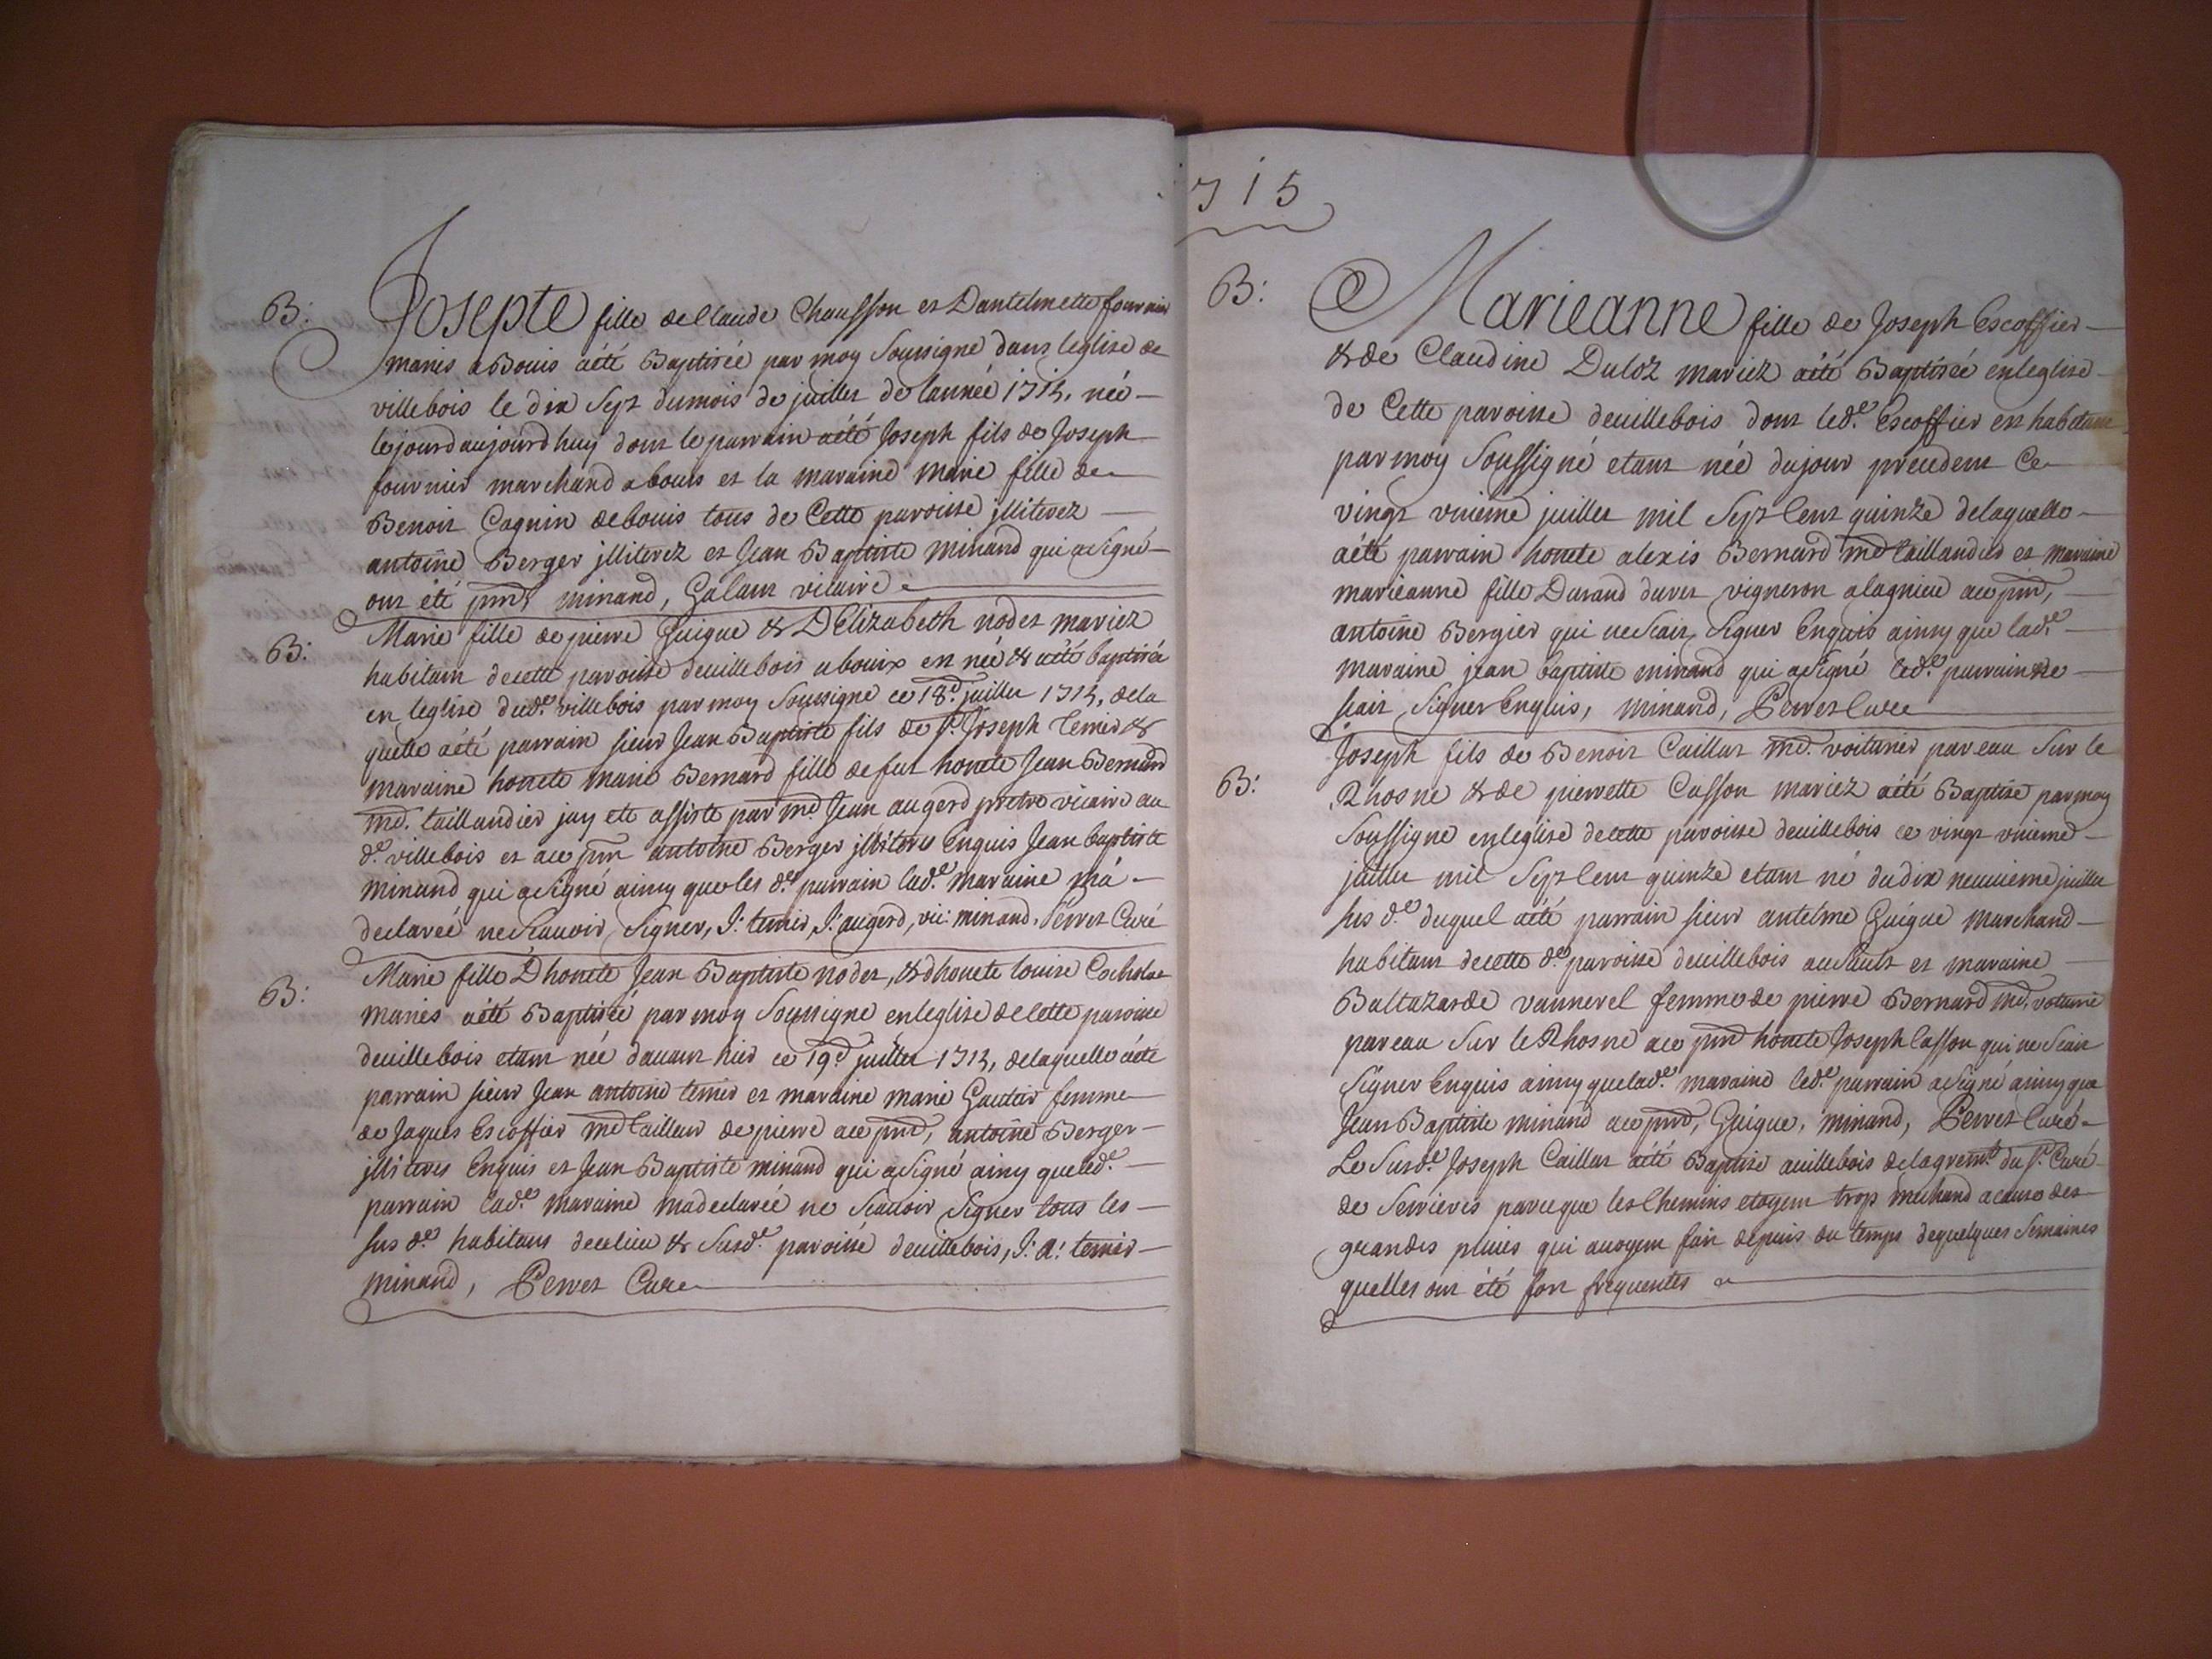 715
B:
Josepte fille de Claude Chausson et Dantelmette fournier
mariés a Bouis aété Baptisée par moy Soussigné dans leglise de
villebois le dix Sept dumois de juillet de lannée 1715, née
lejourdaujourdhuy dont le parrain aété Joseph fils de Joseph
fournier marchand a bouis et la maraine Marie fille de
Benoit Cagnin de bouis tous de Cette paroisse jlliterez
antoine Berger jlliterez et Jean Baptiste minand qui asigné
ont été pnts minand, Galant vicaire
B:
Marie fille de pierre Guigue & DElizabeth nodet mariez
habitam decette paroisse deuillebois a bouix est née & aété baptisée
en leglise dud.e villebois par moy Soussigné ce 18.e juillet 1715, dela
quelle aété parrain sieur Jean Baptiste fils de s.r Joseph Temier &
maraine honete marie Bernard fille de fut honete Jean Bernard
md. taillandier jay ete assisté par m.e Jean augerd pretre vicaire au
d.e villebois et ace pnt antoine Berger jlliteré Enquis Jean baptiste
minand qui asigné ainsy que les d.es parrain lad.e maraine má
declareé nescauoir Signer, J: temier, J: augerd, vic: minand, Perret Curé
B:
Marie fille Dhonete Jean Baptiste nodet, & dhonete louise Cocholat
mariés aété Baptiseé par moy Soussigné enleglise deCette paroisse
deuillebois etant née dauant hier ce 19.e juillet 1715, delaquelle aété
parrain sieur Jean antoine temier et maraine marie Gautier femme
de Jaques Escoffier md tailleur depierre ace pnt, antoine Berger
jlliterés Enquis et Jean Baptiste minand qui asigné ainsy queled.e
parrain lad.e maraine madeclareé ne Scauoir Signer tous les
sus d.es habitans decelieu & Susd.e paroisse deuillebois, J: a: temier
minand, Perret Curé
B:
Marieanne fille de Joseph Escoffier
& de Claudine Duloz mariez aété Baptiséé enleglise
de Cette paroisse deuillebois dont led.e Escoffier est habitant
par moy Soussigné etant née dujour precedent Ce
vingt vnieme juillet mil Sept Cent quinze delaquelle
aété parrain honete alexis Bernard md taillandier et maraine
marieanne fille Durand duret vigneron alagnieu ace pnt,
antoine Bergier qui nescait Signer Enquis ainsy que lad.e
maraine jean baptiste minand qui asigné led.e parrain ne
scait Signer Enquis, minand, Perret Curé
B:
Joseph fils de Benoit Caillat md. voiturier par eau Sur le
Rhosne & de pierrette Casson mariez aété Baptisé parmoy
Soussigné enleglise decette paroisse deuillebois ce vingt vnieme
juillet mil Sept Cent quinze etant né du dix neuuieme juillet
sus d.e duquel aété parrain sieur antelme Guigue marchand
habitant decette d.e paroisse deuillebois au Sault et maraine
Baltazarde vannerel femme de pierre Bernard md. voiturié
par eau Sur le Rhosne ace pnt honete Joseph Casson qui ne Scait
Signer Enquis ainsy quelad.e maraine led.e parrain asigné ainsy que
Jean Baptiste minand ace pnt, Guigue, minand, Perret Curé
Le Susd.e Joseph Caillat aété Baptisé auillebois delagrem.t du s.r Curé
de Serrieres parceque les Chemins etoyent trop mechand acause des
grandes pluies qui auoyent fait depuis du temps dequelques Semaines
quelles ont été fort frequentes